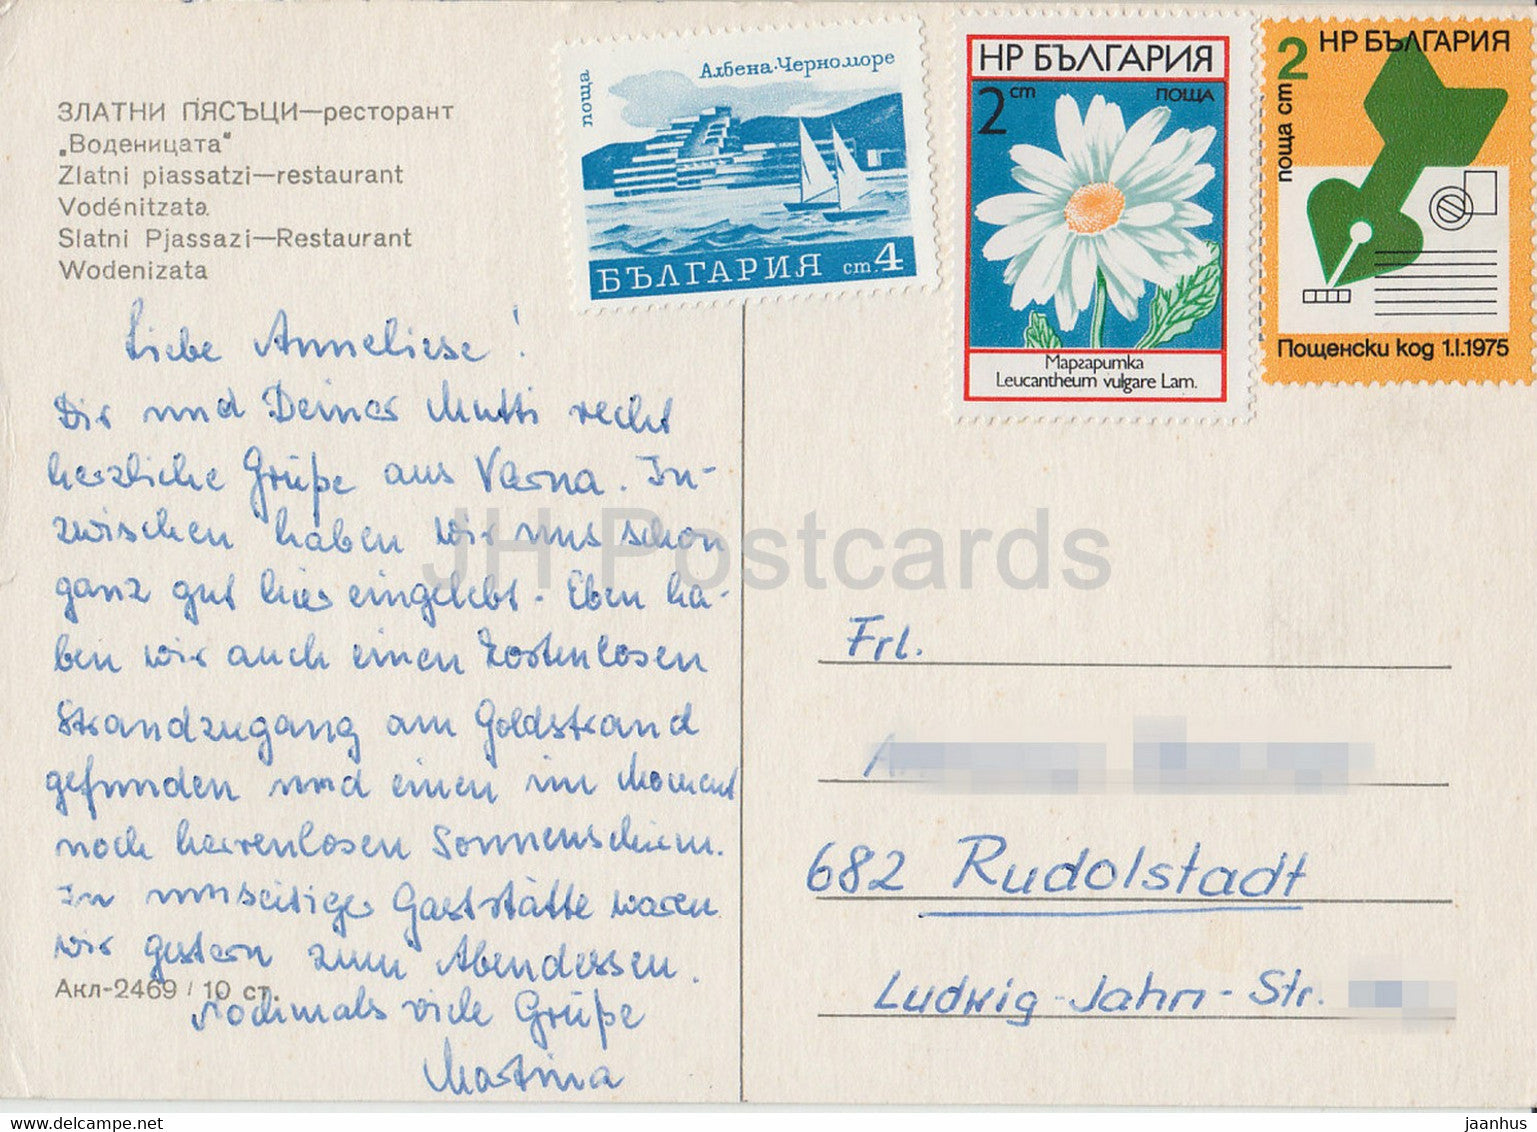 ЗЛАТНИ ПЯСЪЦИ—ресторант
„Воденицата"
Zlatni piassatzi—restaurant
Vodénitzata
Slatni Pjassazi—Restaurant
Wodenizata
поща
Албена·Черноморе
БЪЛГАРИЯ ст.4
НР БЪЛГАРИЯ
2 ст ПОЩА
Маргаритка
Leucantheum vulgare Lam.
2 НР БЪЛГАРИЯ
поща ст
Пощенски код 1.I.1975
Liebe Anneliese!
Dir und Deiner Mutti recht
herzliche Grüße aus Varna. In-
zwischen haben wir uns schon
ganz gut hier eingelebt. Eben ha-
ben wir auch einen kostenlosen
Strandzugang am Goldstrand
gefunden und einen im Moment
noch herrenlosen Sonnenschirm.
In umseitiger Gaststätte waren
wir gestern zum Abendessen.
Акл-2469 / 10 ст.
Nochmals viele Grüße
Martina
JH Postcards
Frl.
682 Rudolstadt
Ludwig-Jahn-Str.
delcampe.net
jaanhus